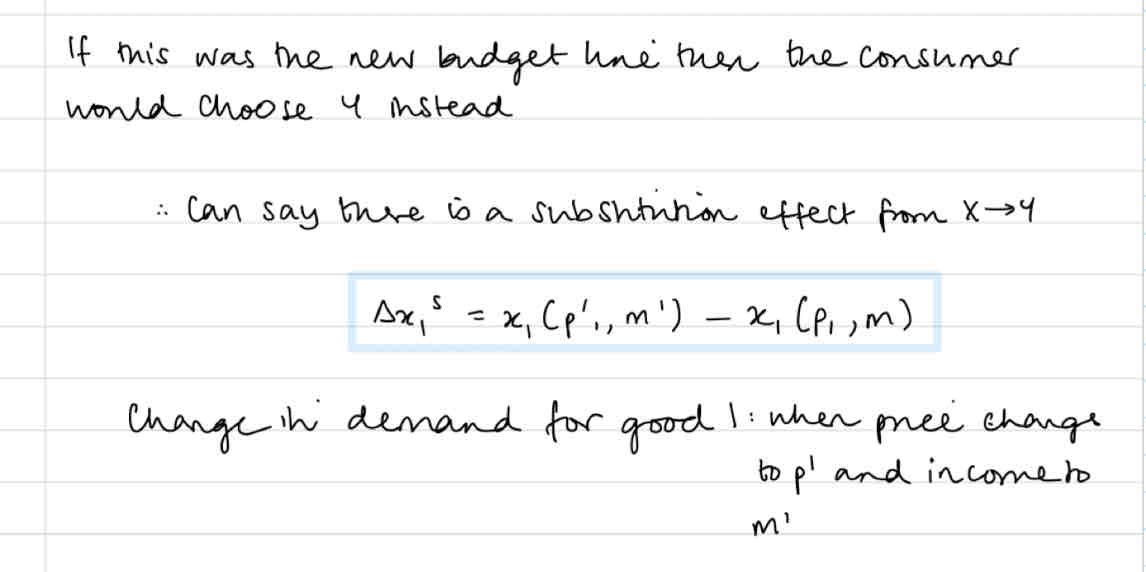 If this was the new budget line then the consumer
would choose Y instead
∴ Can say there is a substitution effect from X→Y
Δx₁ˢ = x₁(p'₁, m') – x₁(p₁, m)
Change in demand for good 1: when price change
to p' and income to
m'